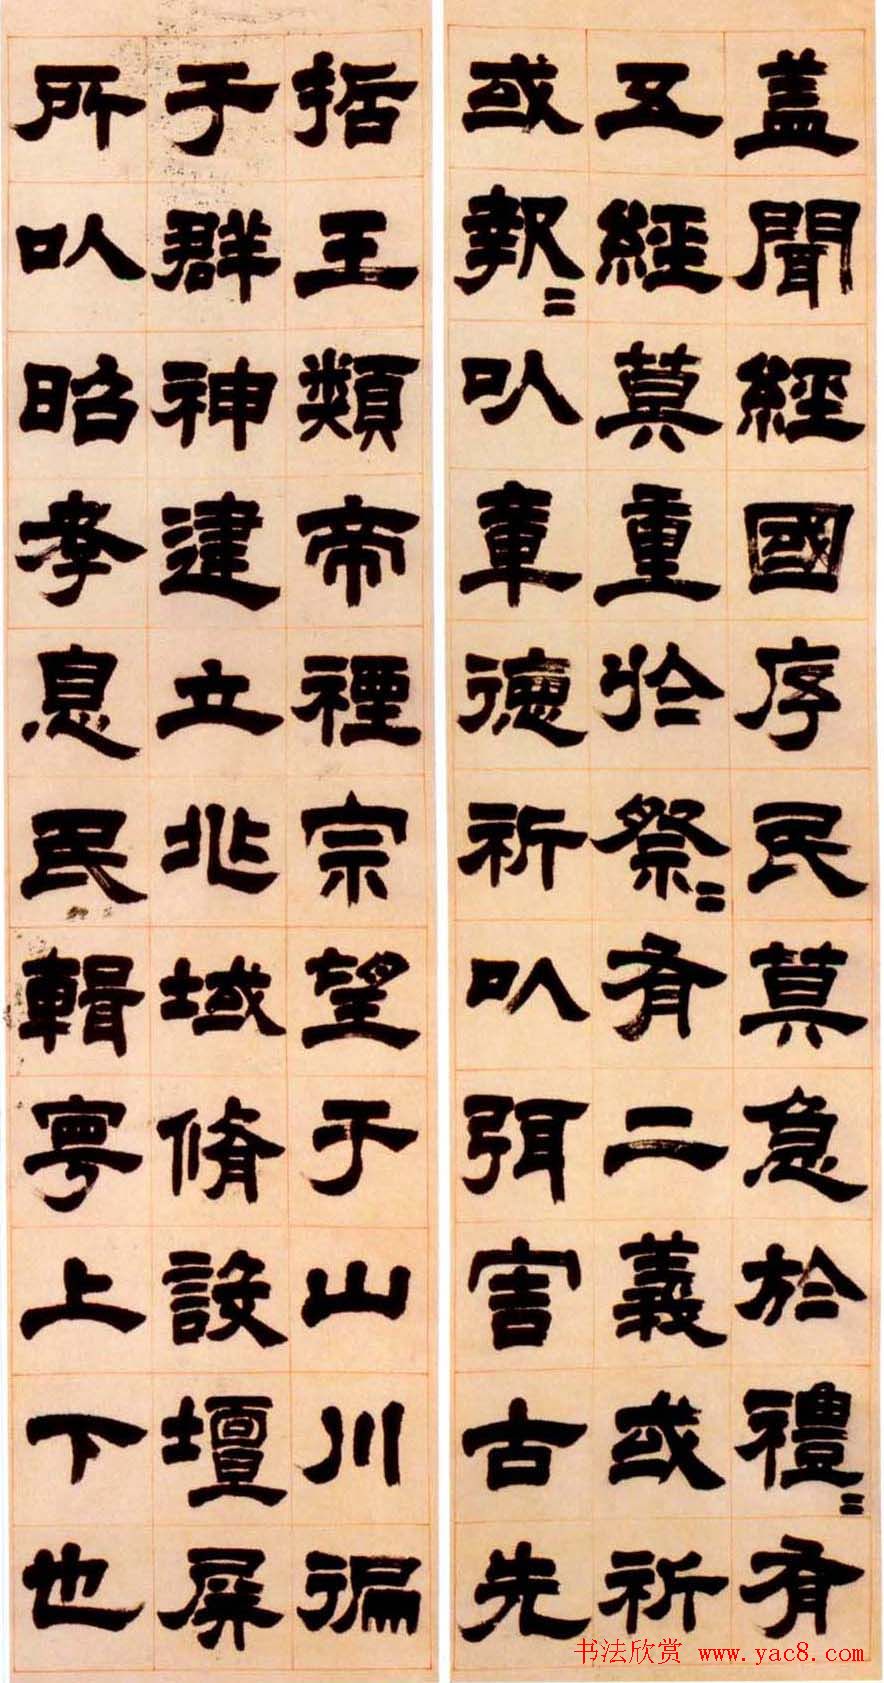 蓋聞經國序民莫急於禮〻有
五經莫重於祭〻有二義或祈
或報〻㠯章德祈㠯弭害古先
哲王類帝禋宗望于山川徧
于群神建立兆域脩設壇屏
所㠯昭孝息民輯寧上下也
书法欣赏 www.yac8.com